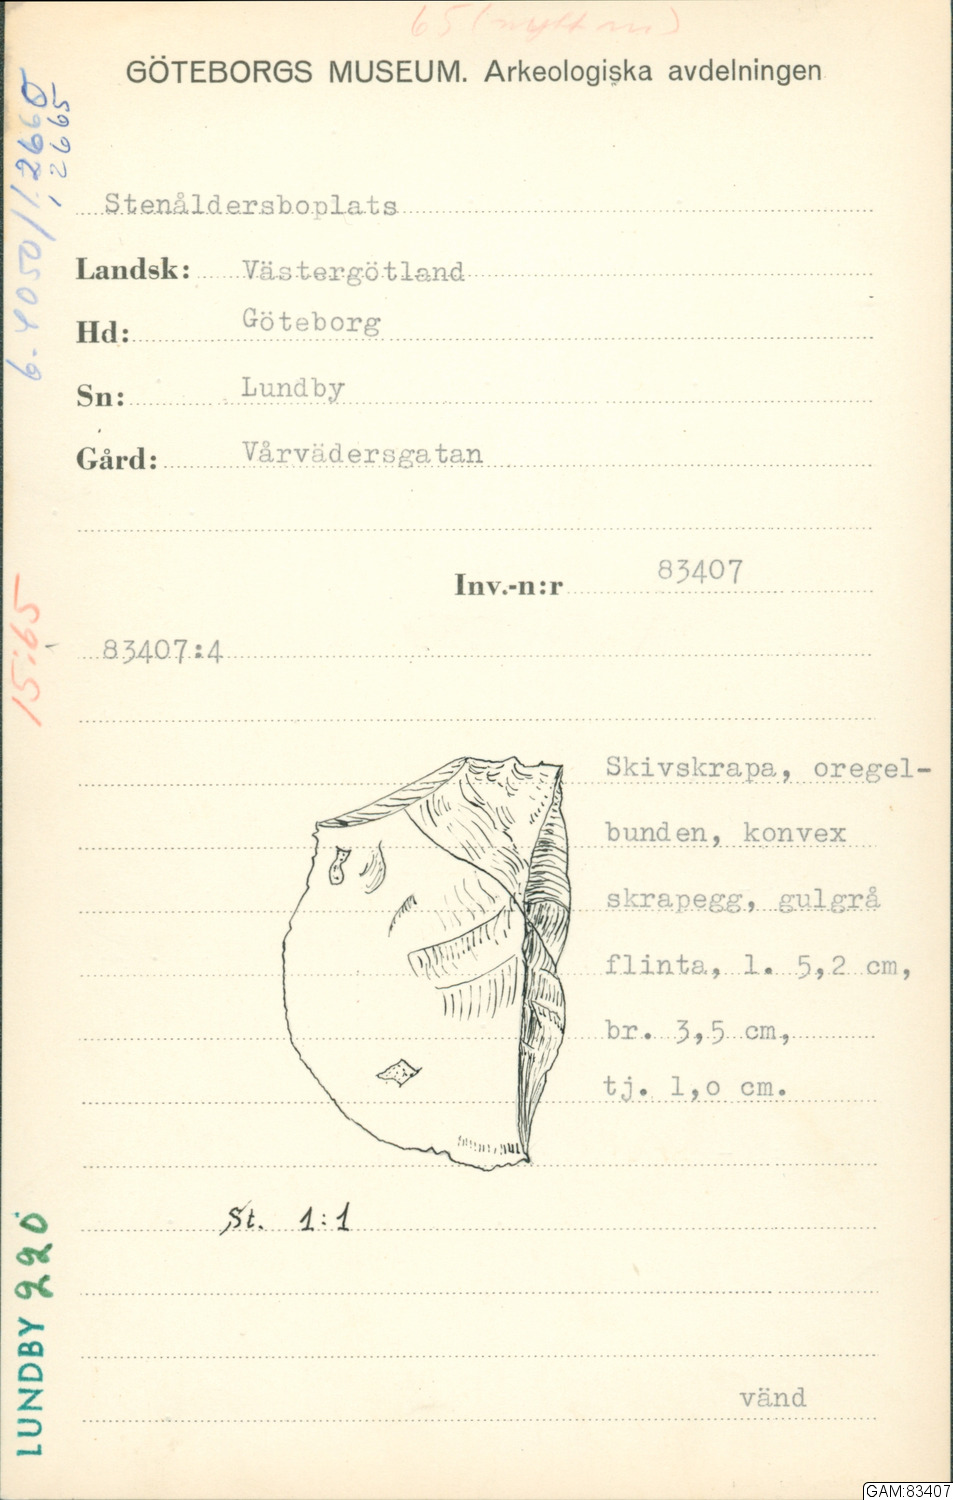 GÖTEBORGS MUSEUM. Arkeologiska avdelningen
Stenåldersboplats
Landsk: Västergötland
Hd: Göteborg
Sn: Lundby
Gård: Vårvädersgatan
Inv.-n:r 83407
83407:4
Skivskrapa, oregel-
bunden, konvex
skrapegg, gulgrå
flinta, l. 5,2 cm,
br. 3,5 cm,
tj. 1,o cm.
St. 1:1
vänd
15:65
LUNDBY 220
GAM:83407